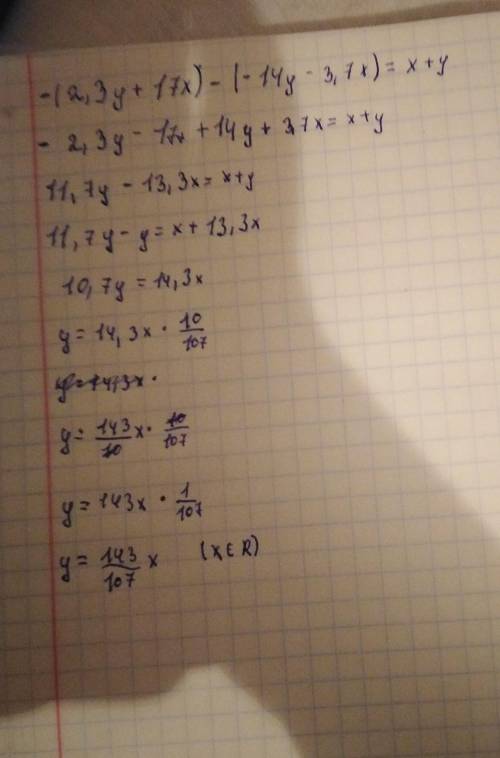 -(2,3y + 17x) - (-14y - 3,7x) = x+y
- 2,3y - 17x + 14y + 3,7x = x+y
11,7y - 13,3x = x+y
11,7y - y = x + 13,3x
10,7y = 14,3x
y = 14,3x · 10/107
y = 14,3x ·
y = 143/10 x · 10/107
y = 143x · 1/107
y = 143/107 x (x ∈ R)